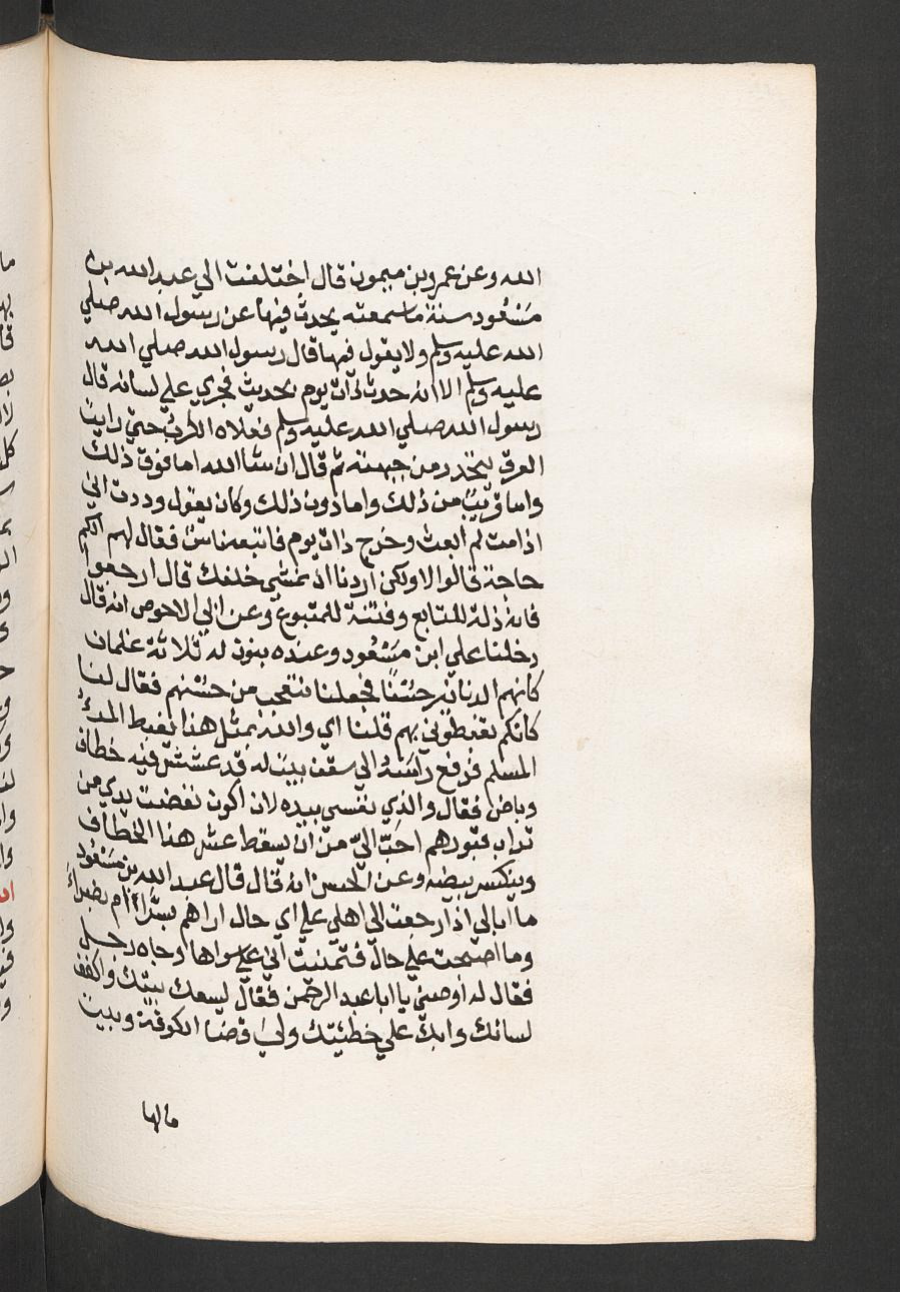 الله وعن عمرو بن ميمون قال اختلفت الي عبد الله بن
مَسْعُود سنة ما سمعته يحدث فيها عن رسول الله صلي
الله عليه وسلم ولا يقول فيها قال رسول الله صلي الله
عليه وسلم الا انه حدث ذات يوم بحديث فجري علي لسانه قال
رسول الله صلي الله عليه وسلم فعلاه الكربُ حتي رايت
العرق يتحدر من جبهته ثم قال ان شا الله اما فوق ذلك
واما قريبٌ من ذلك واما دون ذلك وكان يقول وددت اني
اذا مت لم ابعث وخرج ذات يوم فاتبعه ناسٌ فقال لهم الكم
حاجة قالوا لا ولكن اردنا ان نمشي خلفك قال ارجعوا
فانه ذلة للتابع وفتنة للمتبوع وعن ابي الاحوص انه قال
دخلنا علي ابن مَسْعُود وعنده بنون له ثلاثة غلمان
كانهم الدنانير حسْنًا فجعلنا نتعجب من حسْنهم فقال لنا
كانكم تغبطوني بهم قلنا اي والله بمثل هذا يغبط المرءُ
المسلم فرفع راسَهُ الي سقف بيت له قد عشش فيه خطاف
وباض فقال والذي نفسي بيده لان اكون نفضت يدي من
تراب قبورهم احَبّ اليّ من ان يسقط عش هذا الخطاف
وينكسر بيضه وعن الحسن انه قال قال عبد الله بن مَسْعُود
ما ابالي اذا رجعت الي اهلي علي اي حال اراهم بسَرَّاءٍ ام بضرآء
وما اصبحت علي حال فتمنيت اني علي سواها وجاه رجل
فقال له اوصني يا ابا عبد الرحمن فقال ليسعك بيتك واكفف
لسانك وابك علي خطيئتك ولي قضا الكوفة وبيت
مالها